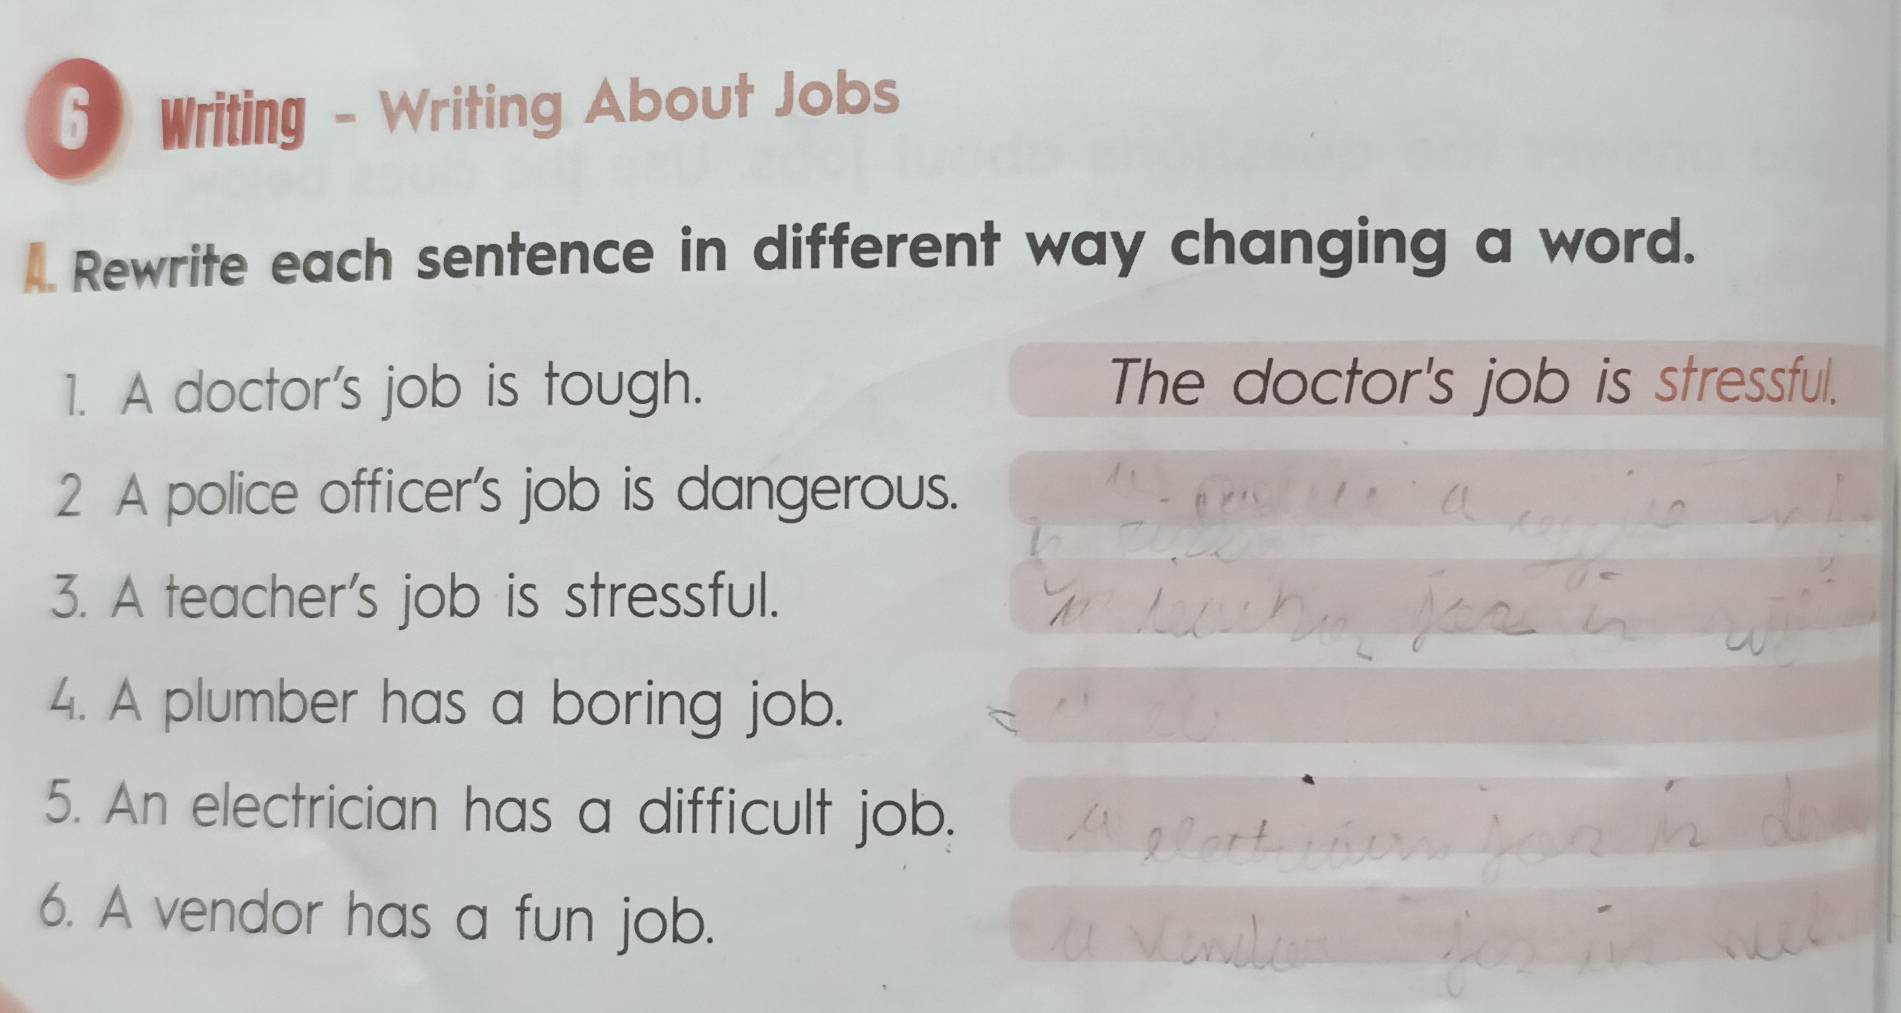 6 Writing - Writing About Jobs
A. Rewrite each sentence in different way changing a word.
1. A doctor's job is tough. The doctor's job is stressful.
2 A police officer's job is dangerous.
3. A teacher's job is stressful.
4. A plumber has a boring job.
5. An electrician has a difficult job.
6. A vendor has a fun job.